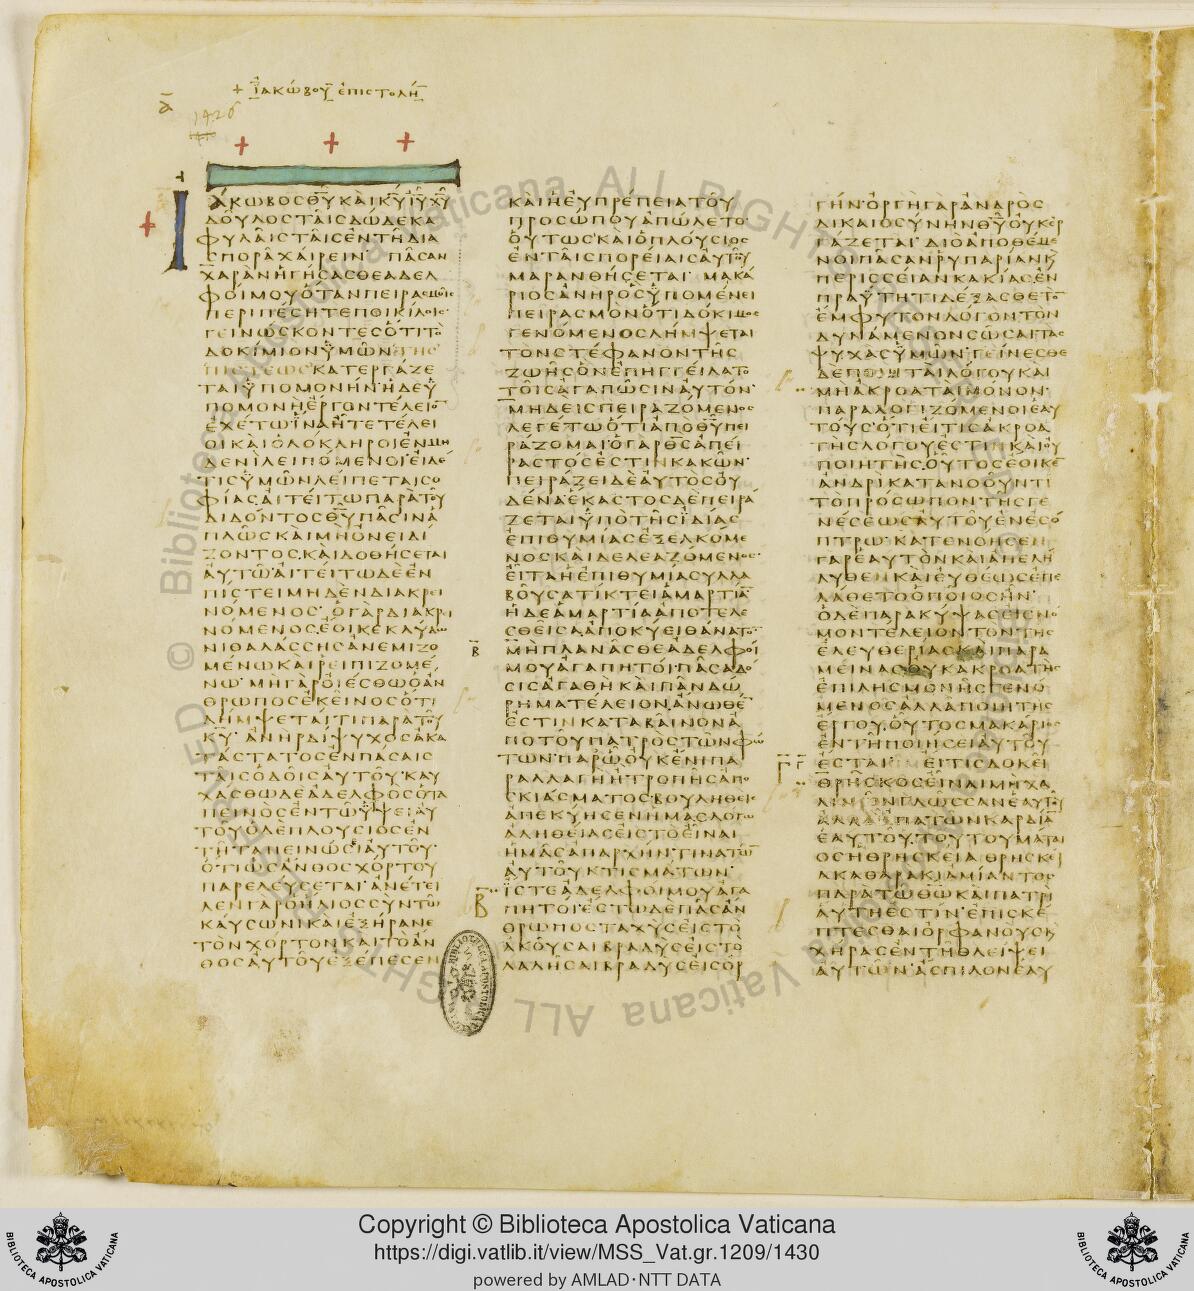 + ΙΑΚΩΒΟΥ ΕΠΙϹΤΟΛΗ
1426
ΙΑΚΩΒΟϹΘΥΚΑΙΚΥΙΥΧΥ
ΔΟΥΛΟϹΤΑΙϹΔΩΔΕΚΑ
ΦΥΛΑΙϹΤΑΙϹΕΝΤΗΔΙΑ
ϹΠΟΡΑΧΑΙΡΕΙΝ ΠΑϹΑΝ
ΧΑΡΑΝΗΓΗϹΑϹΘΕΑΔΕΛ
ΦΟΙΜΟΥΟΤΑΝΠΕΙΡΑϹΜΟΙϹ
ΠΕΡΙΠΕϹΗΤΕΠΟΙΚΙΛΟΙϹ
ΓΕΙΝΩϹΚΟΝΤΕϹΟΤΙΤΟ
ΔΟΚΙΜΙΟΝΥΜΩΝΤΗϹ
ΠΙϹΤΕΩϹΚΑΤΕΡΓΑΖΕ
ΤΑΙΥΠΟΜΟΝΗΝΗΔΕΥ
ΠΟΜΟΝΗΕΡΓΟΝΤΕΛΕΙΟ
ΕΧΕΤΩΙΝΑΗΤΕΤΕΛΕΙ
ΟΙΚΑΙΟΛΟΚΛΗΡΟΙΕΝΜΗ
ΔΕΝΙΛΕΙΠΟΜΕΝΟΙΕΙΔΕ
ΤΙϹΥΜΩΝΛΕΙΠΕΤΑΙϹΟ
ΦΙΑϹΑΙΤΕΙΤΩΠΑΡΑΤΟΥ
ΔΙΔΟΝΤΟϹΘΥΠΑϹΙΝΑ
ΠΛΩϹΚΑΙΜΗΟΝΕΙΔΙ
ΖΟΝΤΟϹΚΑΙΔΟΘΗϹΕΤΑΙ
ΑΥΤΩΑΙΤΕΙΤΩΔΕΕΝ
ΠΙϹΤΕΙΜΗΔΕΝΔΙΑΚΡΕΙ
ΝΟΜΕΝΟϹ·ΟΓΑΡΔΙΑΚΡΙ
ΝΟΜΕΝΟϹΕΟΙΚΕΚΛΥΔΩ
ΝΙΘΑΛΑϹϹΗϹΑΝΕΜΙΖΟ
ΜΕΝΩΚΑΙΡΕΙΠΙΖΟΜΕ
ΝΩ·ΜΗΓΑΡΟΙΕϹΘΩΟΑΝ
ΘΡΩΠΟϹΕΚΕΙΝΟϹΟΤΙ
ΛΗΜΨΕΤΑΙΤΙΠΑΡΑΤΟΥ
ΚΥ·ΑΝΗΡΔΙΨΥΧΟϹΑΚΑ
ΤΑϹΤΑΤΟϹΕΝΠΑϹΑΙϹ
ΤΑΙϹΟΔΟΙϹΑΥΤΟΥ·ΚΑΥ
ΧΑϹΘΩΔΕΑΔΕΛΦΟϹΟΤΑ
ΠΕΙΝΟϹΕΝΤΩΥΨΕΙΑΥ
ΤΟΥΟΔΕΠΛΟΥϹΙΟϹΕΝ
ΤΗΤΑΠΕΙΝΩϹΙΑΥΤΟΥ·
ΟΤΙΩϹΑΝΘΟϹΧΟΡΤΟΥ
ΠΑΡΕΛΕΥϹΕΤΑΙ·ΑΝΕΤΕΙ
ΛΕΝΓΑΡΟΗΛΙΟϹϹΥΝΤΩ
ΚΑΥϹΩΝΙΚΑΙΕΞΗΡΑΝΕ
ΤΟΝΧΟΡΤΟΝΚΑΙΤΟΑΝ
ΘΟϹΑΥΤΟΥΕΞΕΠΕϹΕΝ
ΚΑΙΗΕΥΠΡΕΠΕΙΑΤΟΥ
ΠΡΟϹΩΠΟΥΑΠΩΛΕΤΟ·
ΟΥΤΩϹΚΑΙΟΠΛΟΥϹΙΟϹ
ΕΝΤΑΙϹΠΟΡΕΙΑΙϹΑΥΤΟΥ
ΜΑΡΑΝΘΗϹΕΤΑΙ· ΜΑΚΑ
ΡΙΟϹΑΝΗΡΟϹΥΠΟΜΕΝΕΙ
ΠΕΙΡΑϹΜΟΝΟΤΙΔΟΚΙΜΟϹ
ΓΕΝΟΜΕΝΟϹΛΗΜΨΕΤΑΙ
ΤΟΝϹΤΕΦΑΝΟΝΤΗϹ
ΖΩΗϹΟΝΕΠΗΓΓΕΙΛΑΤΟ
ΤΟΙϹΑΓΑΠΩϹΙΝΑΥΤΟΝ·
ΜΗΔΕΙϹΠΕΙΡΑΖΟΜΕΝΟϹ
ΛΕΓΕΤΩΟΤΙΑΠΟΘΥΠΕΙ
ΡΑΖΟΜΑΙ·ΟΓΑΡΘϹΑΠΕΙ
ΡΑϹΤΟϹΕϹΤΙΝΚΑΚΩΝ·
ΠΕΙΡΑΖΕΙΔΕΑΥΤΟϹΟΥ
ΔΕΝΑ·ΕΚΑϹΤΟϹΔΕΠΕΙΡΑ
ΖΕΤΑΙΥΠΟΤΗϹΙΔΙΑϹ
ΕΠΙΘΥΜΙΑϹΕΞΕΛΚΟΜΕ
ΝΟϹΚΑΙΔΕΛΕΑΖΟΜΕΝΟϹ·
ΕΙΤΑΗΕΠΙΘΥΜΙΑϹΥΛΛΑ
ΒΟΥϹΑΤΙΚΤΕΙΑΜΑΡΤΙΑ
ΗΔΕΑΜΑΡΤΙΑΑΠΟΤΕΛΕ
ϹΘΕΙϹΑΑΠΟΚΥΕΙΘΑΝΑΤΟ
ΜΗΠΛΑΝΑϹΘΕΑΔΕΛΦΟΙ
ΜΟΥΑΓΑΠΗΤΟΙ·ΠΑϹΑΔΟ
ϹΙϹΑΓΑΘΗΚΑΙΠΑΝΔΩ
ΡΗΜΑΤΕΛΕΙΟΝΑΝΩΘΕ
ΕϹΤΙΝΚΑΤΑΒΑΙΝΟΝΑ
ΠΟΤΟΥΠΑΤΡΟϹΤΩΝΦΩ
ΤΩΝ·ΠΑΡΩΟΥΚΕΝΙΠΑ
ΡΑΛΛΑΓΗΗΤΡΟΠΗϹΑΠΟ
ϹΚΙΑϹΜΑΤΟϹΒΟΥΛΗΘΕΙϹ
ΑΠΕΚΥΗϹΕΝΗΜΑϹΛΟΓΩ
ΑΛΗΘΕΙΑϹΕΙϹΤΟΕΙΝΑΙ
ΗΜΑϹΑΠΑΡΧΗΝΤΙΝΑΤΩ
ΑΥΤΟΥΚΤΙϹΜΑΤΩΝ·
ΙϹΤΕΑΔΕΛΦΟΙΜΟΥΑΓΑ
ΠΗΤΟΙΕϹΤΩΔΕΠΑϹΑΝ
ΘΡΩΠΟϹΤΑΧΥϹΕΙϹΤΟ
ΑΚΟΥϹΑΙΒΡΑΔΥϹΕΙϹΤΟ
ΛΑΛΗϹΑΙΒΡΑΔΥϹΕΙϹΟΡ
ΓΗΝ·ΟΡΓΗΓΑΡΑΝΔΡΟϹ
ΔΙΚΑΙΟϹΥΝΗΝΘΥΟΥΚΕΡ
ΓΑΖΕΤΑΙ·ΔΙΟΑΠΟΘΕΜΕ
ΝΟΙΠΑϹΑΝΡΥΠΑΡΙΑΝΚ
ΠΕΡΙϹϹΕΙΑΝΚΑΚΙΑϹΕΝ
ΠΡΑΥΤΗΤΙΔΕΞΑϹΘΕΤΟ
ΕΜΦΥΤΟΝΛΟΓΟΝΤΟΝ
ΔΥΝΑΜΕΝΟΝϹΩϹΑΙΤΑϹ
ΨΥΧΑϹΥΜΩΝ·ΓΕΙΝΕϹΘΕ
ΔΕΠΟΙΗΤΑΙΛΟΓΟΥΚΑΙ
ΜΗΑΚΡΟΑΤΑΙΜΟΝΟΝ·
ΠΑΡΑΛΟΓΙΖΟΜΕΝΟΙΕΑΥ
ΤΟΥϹ·ΟΤΙΕΙΤΙϹΑΚΡΟΑ
ΤΗϹΛΟΓΟΥΕϹΤΙΝΚΑΙΟΥ
ΠΟΙΗΤΗϹ·ΟΥΤΟϹΕΟΙΚΕ
ΑΝΔΡΙΚΑΤΑΝΟΟΥΝΤΙ
ΤΟΠΡΟϹΩΠΟΝΤΗϹΓΕ
ΝΕϹΕΩϹΑΥΤΟΥΕΝΕϹΟ
ΠΤΡΩ·ΚΑΤΕΝΟΗϹΕΝ
ΓΑΡΕΑΥΤΟΝΚΑΙΑΠΕΛΗ
ΛΥΘΕΝΚΑΙΕΥΘΕΩϹΕΠΕ
ΛΑΘΕΤΟΟΠΟΙΟϹΗΝ·
ΟΔΕΠΑΡΑΚΥΨΑϹΕΙϹΝΟ
ΜΟΝΤΕΛΕΙΟΝΤΟΝΤΗϹ
ΕΛΕΥΘΕΡΙΑϹΚΑΙΠΑΡΑ
ΜΕΙΝΑϹΟΥΚΑΚΡΟΑΤΗϹ
ΕΠΙΛΗϹΜΟΝΗϹΓΕΝΟ
ΜΕΝΟϹΑΛΛΑΠΟΙΗΤΗϹ
ΕΡΓΟΥ·ΟΥΤΟϹΜΑΚΑΡΙΟϹ
ΕΝΤΗΠΟΙΗϹΕΙΑΥΤΟΥ
ΕϹΤΑΙ· ΕΙΤΙϹΔΟΚΕΙ
ΘΡΗϹΚΟϹΕΙΝΑΙΜΗΧΑ
ΛΙΝΩΝΓΛΩϹϹΑΝΕΑΥΤΟΥ
ΑΛΛΑΑΠΑΤΩΝΚΑΡΔΙΑ
ΕΑΥΤΟΥ·ΤΟΥΤΟΥΜΑΤΑΙ
ΟϹΗΘΡΗϹΚΕΙΑ·ΘΡΗϹΚΕΙ
ΑΚΑΘΑΡΑΚΑΙΑΜΙΑΝΤΟϹ
ΠΑΡΑΤΩΘΩΚΑΙΠΑΤΡΙ
ΑΥΤΗΕϹΤΙΝ·ΕΠΙϹΚΕ
ΠΤΕϹΘΑΙΟΡΦΑΝΟΥϹΚ
ΧΗΡΑϹΕΝΤΗΘΛΕΙΨΕΙ
ΑΥΤΩΝ·ΑϹΠΙΛΟΝΕΑΥ
Copyright © Biblioteca Apostolica Vaticana
https://digi.vatlib.it/view/MSS_Vat.gr.1209/1430
powered by AMLAD·NTT DATA